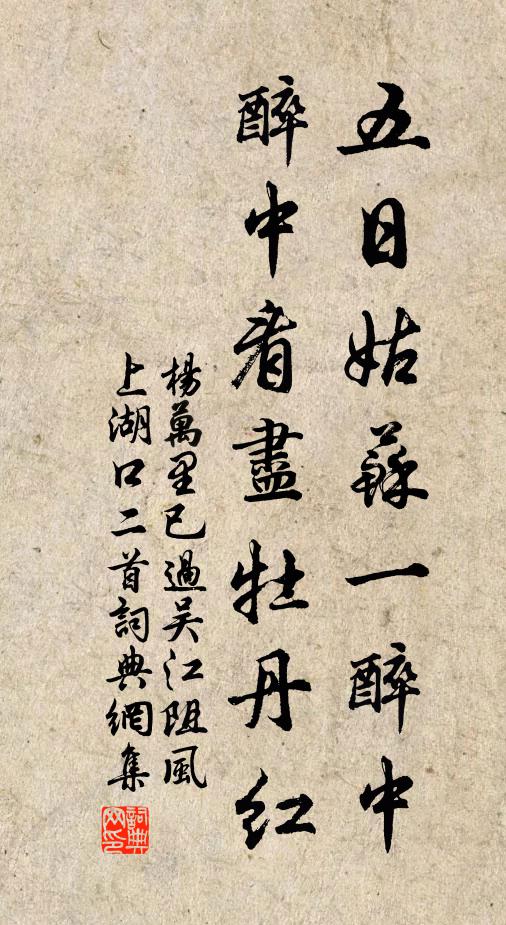 五日姑蘇一醉中
醉中看盡牡丹紅
楊萬里已過吴江阻風
上湖口二首詞典網集
詞典網印